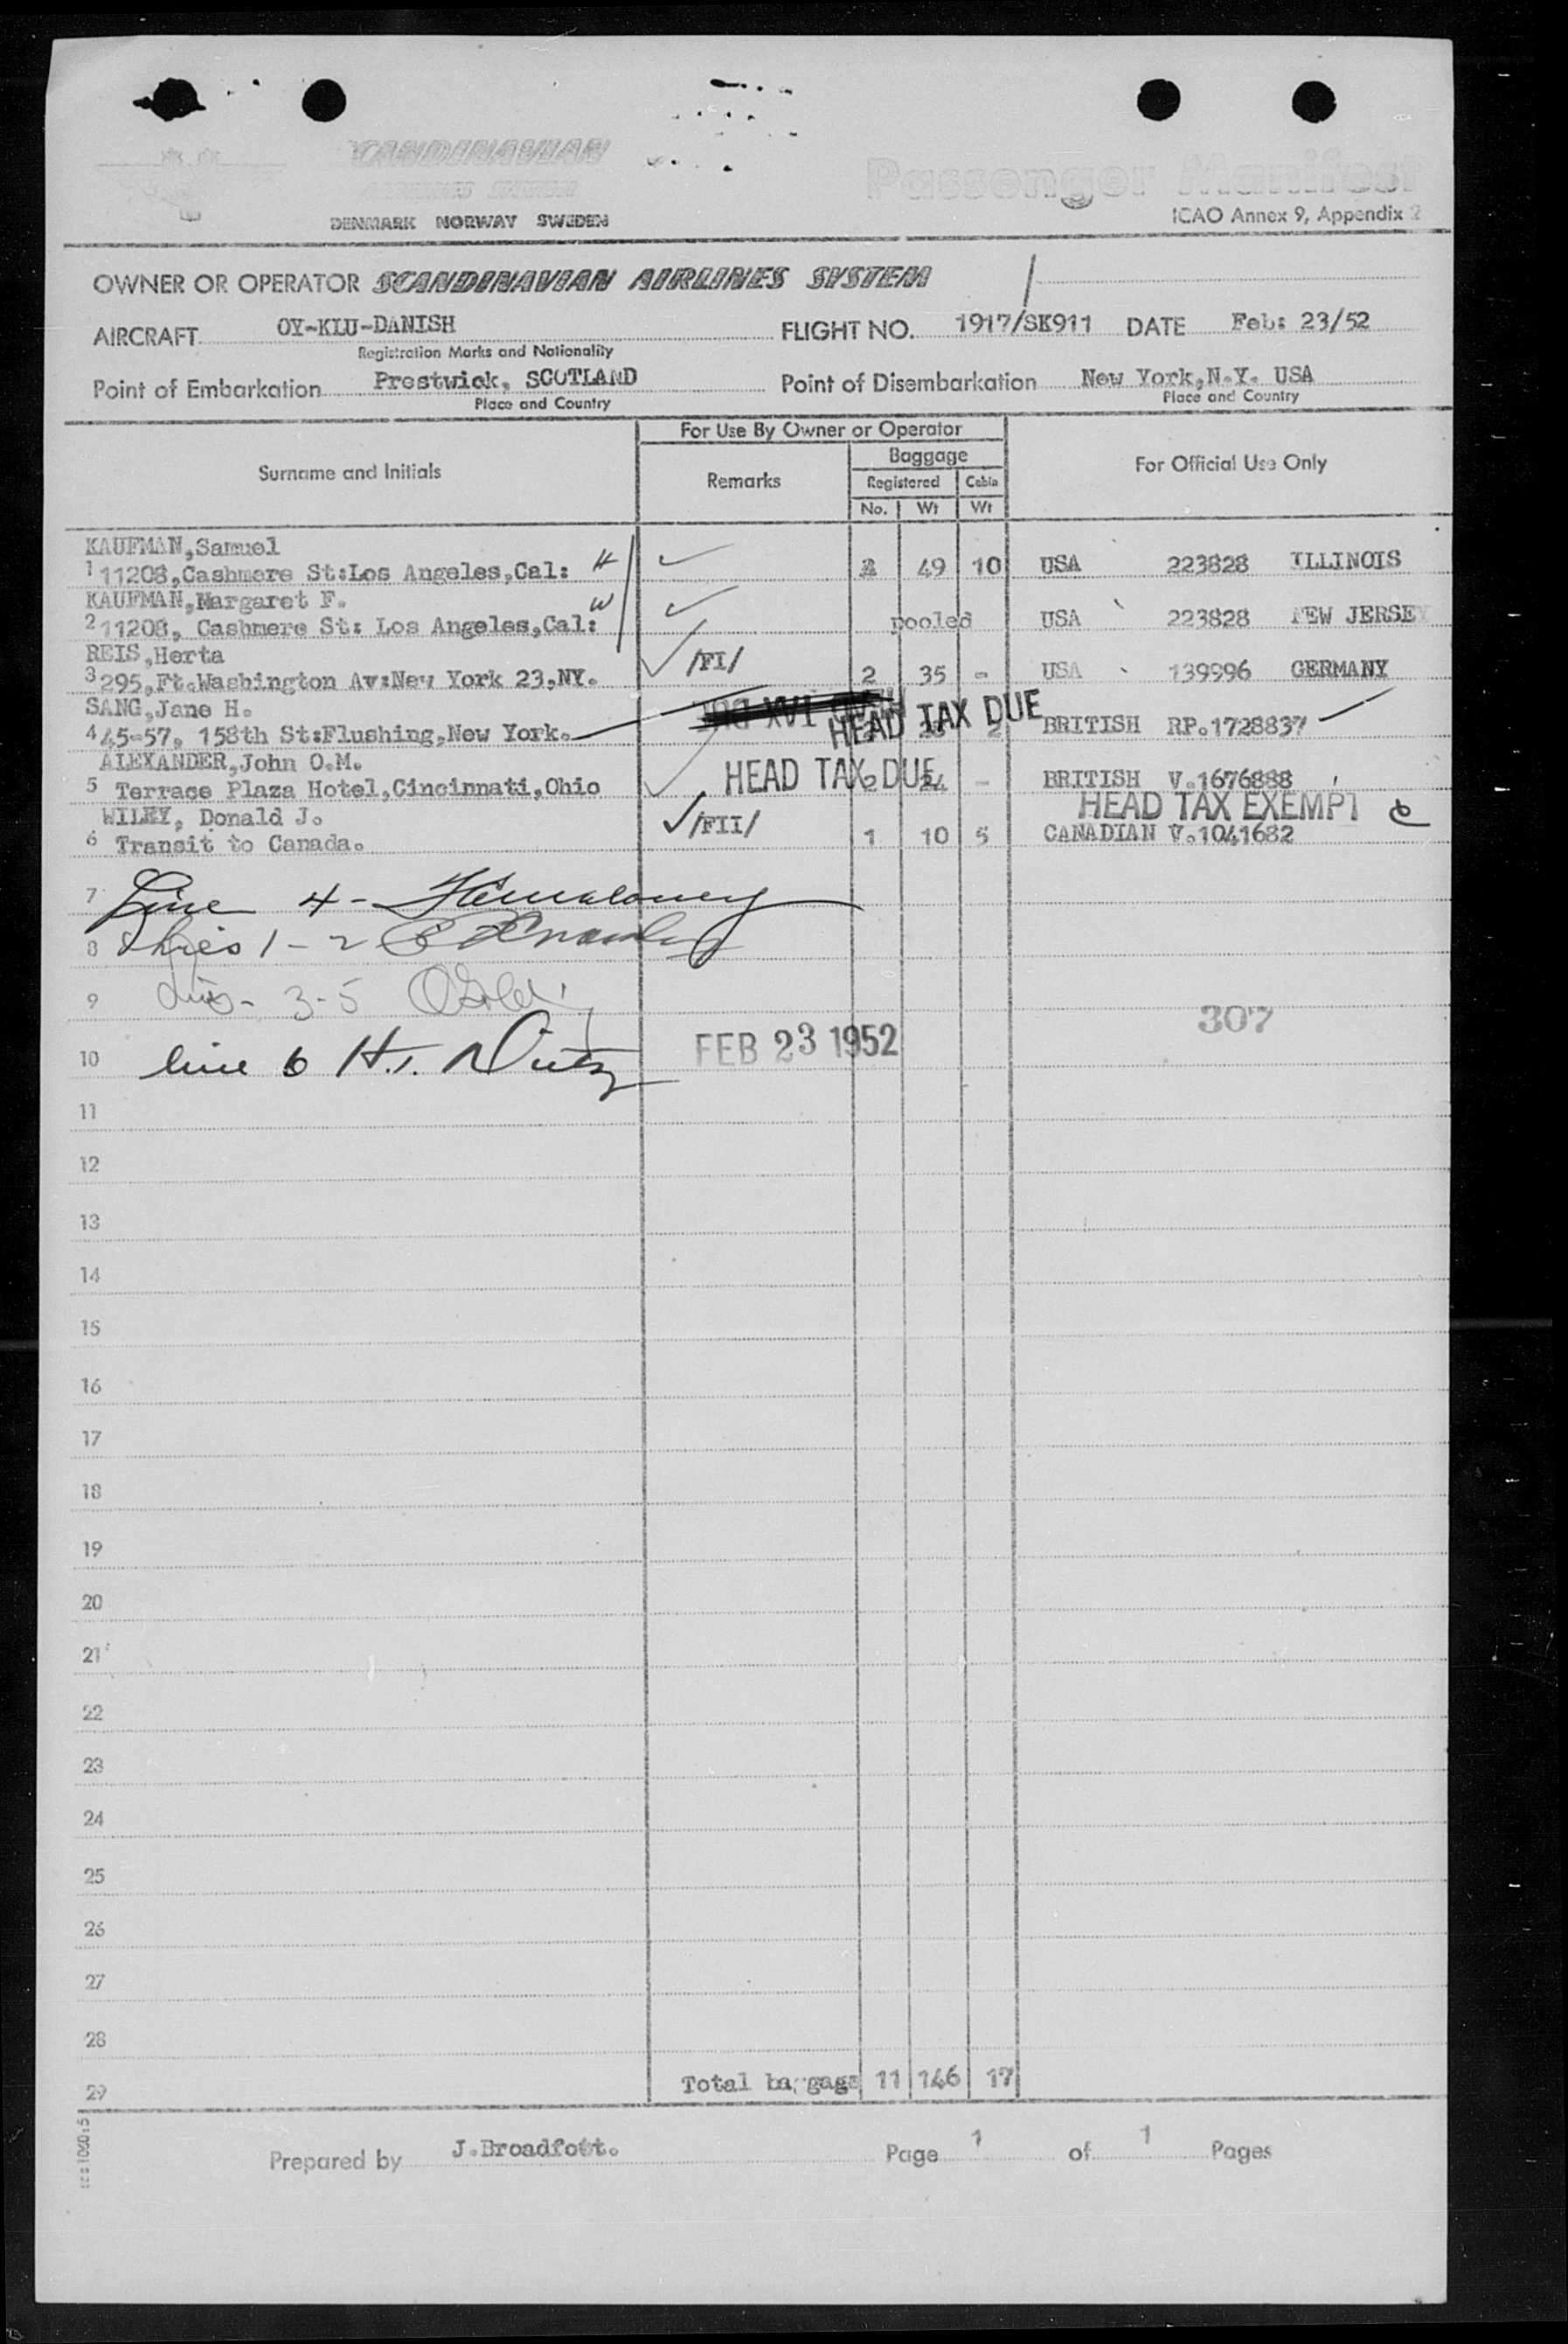 SCANDINAVIAN
AIRLINES SYSTEM
DENMARK NORWAY SWEDEN
Passenger Manifest
ICAO Annex 9, Appendix 2
OWNER OR OPERATOR SCANDINAVIAN AIRLINES SYSTEM
AIRCRAFT OY-KLU-DANISH FLIGHT NO. 1917/SK911 DATE Feb: 23/52
Registration Marks and Nationality
Point of Embarkation Prestwick, SCOTLAND Point of Disembarkation New York,N.Y. USA
Place and Country Place and Country
For Use By Owner or Operator
Surname and Initials Remarks Baggage For Official Use Only
Registered Cabin
No. Wt Wt
KAUFMAN,Samuel
1 11208,Cashmere St:Los Angeles,Cal: H 49 10 USA 223828 ILLINOIS
KAUFMAN,Margaret F.
2 11208, Cashmere St: Los Angeles,Cal: W pooled USA 223828 NEW JERSEY
REIS,Herta
3 295,Ft.Washington Av:New York 23,NY. /FI/ 2 35 - USA 139996 GERMANY
SANG,Jane H.
4 45-57, 158th St:Flushing,New York. HEAD TAX DUE 2 BRITISH RP.1728837
ALEXANDER,John O.M.
5 Terrace Plaza Hotel,Cincinnati,Ohio HEAD TAX DUE 2 24 - BRITISH V.1676888
HEAD TAX EXEMPT
WILEY, Donald J.
6 Transit to Canada. /FII/ 1 10 5 CANADIAN V.1041682
7 Line 4 -
8 1 - 2
9 3-5
307
10 line 6 H.
FEB 23 1952
11
12
13
14
15
16
17
18
19
20
21
22
23
24
25
26
27
28
29 Total baggage 11 146 17
Prepared by J.Broadfoot. Page 1 of 1 Pages